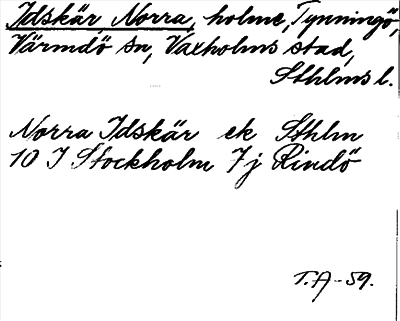 Idskär, Norra, holme, Tynningö,
Värmdö sn, Vaxholms stad,
Sthlms l.
Norra Idskär ek Sthlm
10 I Stockholm 7j Rindö
T.A-59.